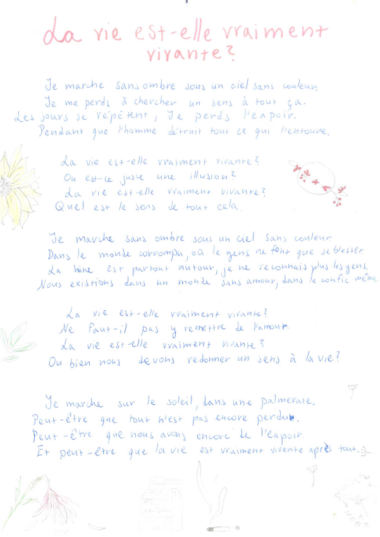 La vie est-elle vraiment
vivante?
Je marche sans ombre sous un ciel sans couleur
Je me perds à chercher un sens à tout ça.
Les jours se répètent, Je perds l'espoir.
Pendant que l'homme détruit tout ce qui l'entoure.
La vie est-elle vraiment vivante?
Ou est-ce juste une illusion?
La vie est-elle vraiment vivante?
Quel est le sens de tout cela.
Je marche sans ombre sous un ciel sans couleur
Dans le monde corrompu, où le gens ne font que se blesser
La haine est partout autour, je ne reconnais plus les gens
Nous existons dans un monde sans amour, dans le conflit même
La vie est-elle vraiment vivante?
Ne faut-il pas y remettre de l'amour.
La vie est-elle vraiment vivante?
Ou bien nous devons redonner un sens à la vie?
Je marche sur le soleil, dans une palmeraie.
Peut-être que tout n'est pas encore perdu.
Peut-être que nous avons encore de l'espoir.
Et peut-être que la vie est vraiment vivente après tout.